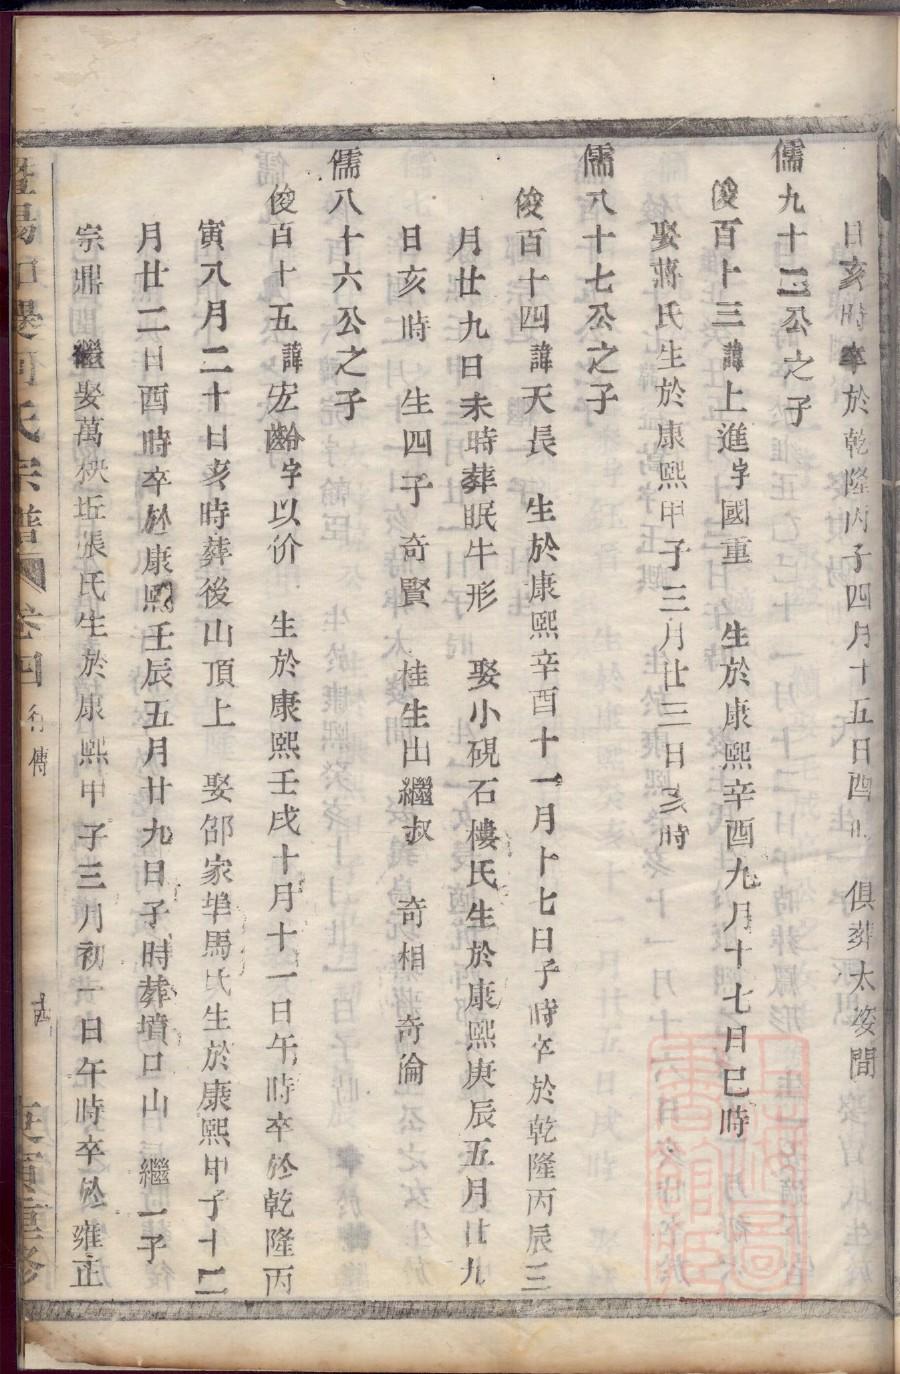 日亥時卒於乾隆丙子四月十五日酉時　俱葬太婆閒
儒九十三公之子
俊百十三諱上進字國重　生於康熙辛酉九月十七日巳時
娶蔣氏生於康熙甲子三月廿三日亥時
儒八十七公之子
俊百十四諱天長　生於康熙辛酉十一月十七日子時卒於乾隆丙辰三
月廿九日未時葬眠牛形　娶小硯石樓氏生於康熙庚辰五月廿九
日亥時　生四子　奇賢　桂生出繼叔　奇相　奇淪
儒八十六公之子
俊百十五諱宏齡字以价　生於康熙壬戌十月十一日午時卒於乾隆丙
寅八月二十日亥時葬後山頂上　娶郃家埠馬氏生於康熙甲子十二
月廿二日酉時卒於康熙壬辰五月廿九日子時葬墳口山　繼一子
宗鼎　繼娶萬秧坵張氏生於康熙甲子三月初一日午時卒於雍正
氏宗譜　卷十四　行傳　　重修